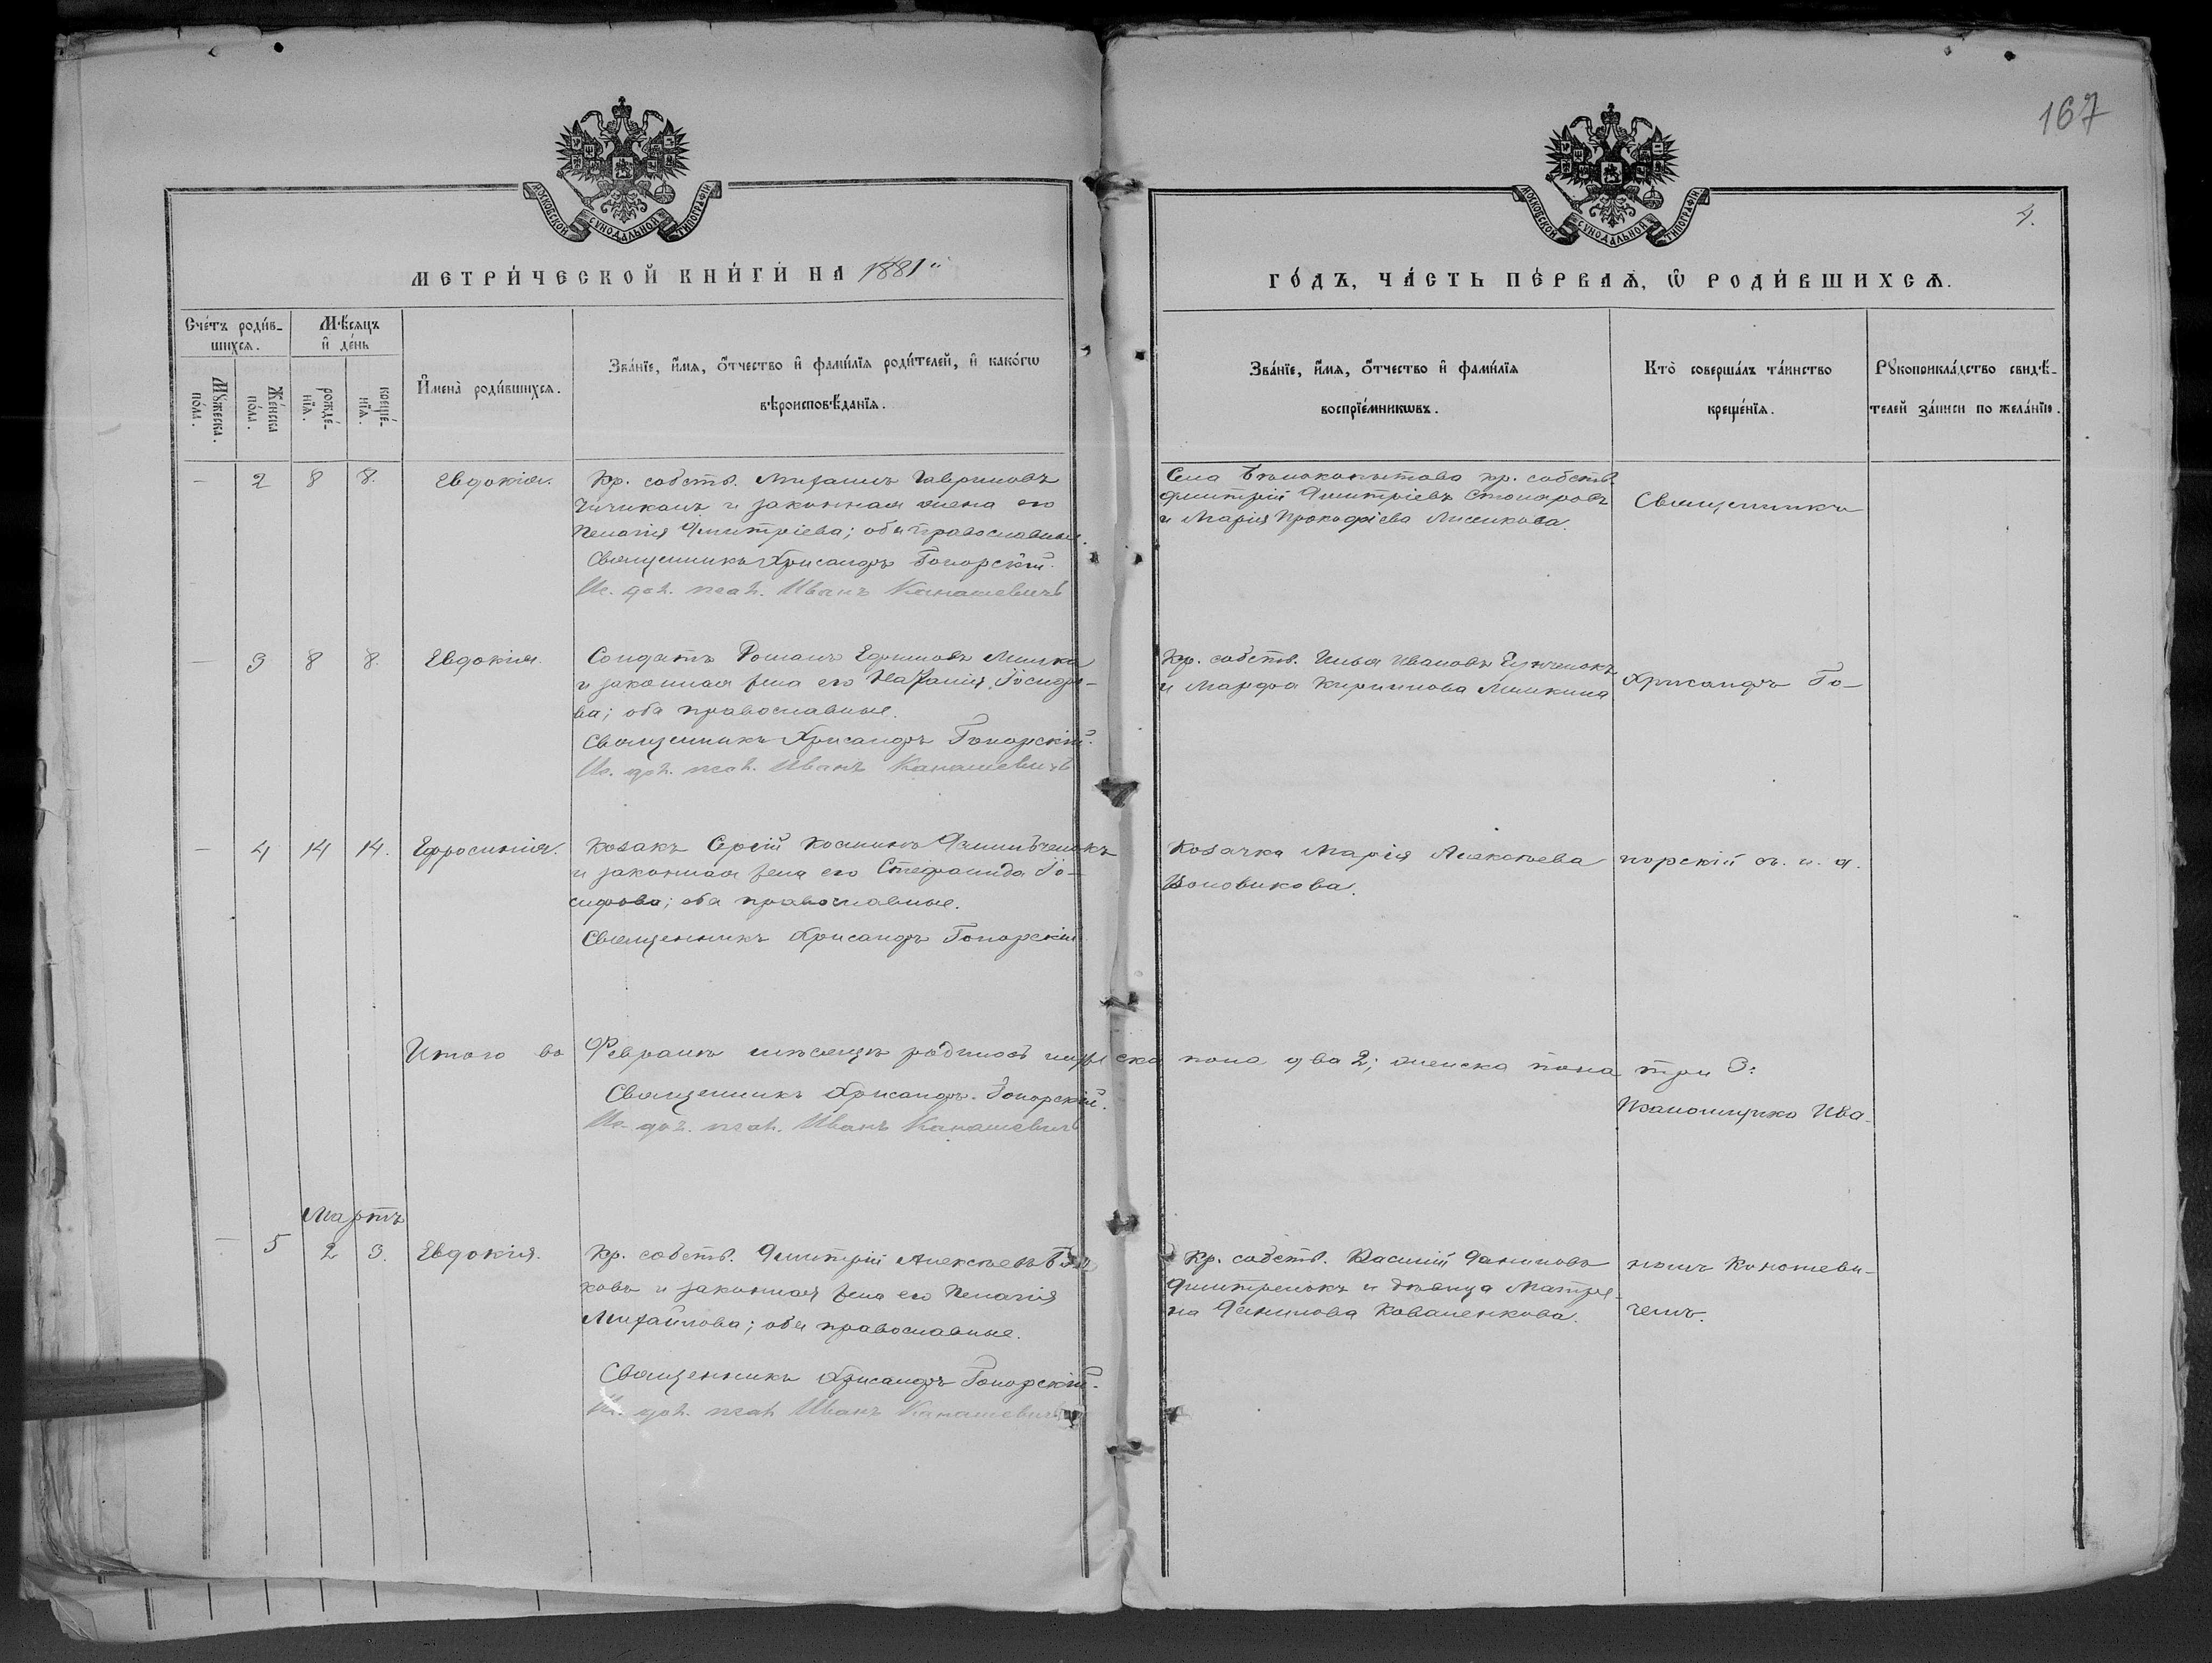 167
4.
МОСКОВСКОЙ СѴНОДАЛЬНОЙ ТИПОГРАФІИ
МОСКОВСКОЙ СѴНОДАЛЬНОЙ ТИПОГРАФІИ
МЕТРИ́ЧЕСКОЙ КНИ́ГИ НА 1881й
ГО́ДЪ, ЧА́СТЬ ПЕ́РВАѦ, Ѡ҆ РОДИ́ВШИХСѦ.
Сче́тъ роди́в-
шихсѧ.
Мꙋ́жеска по́ла.
Же́нска по́ла.
Мѣ́сѧцъ
и҆ де́нь
рожде́-нїѧ.
креще́-нїѧ.
И҆мена̀ роди́вшихсѧ.
Зва́нїе, и҆́мѧ, ѻ҆́тчество и҆ фами́лїѧ роди́телей, и҆ како́гѡ
вѣроисповѣ́данїѧ.
Зва́нїе, и҆́мѧ, ѻ҆́тчество и҆ фами́лїѧ
воспрїе́мникѡвъ.
Кто̀ соверша́лъ та́инство
креще́нїѧ.
Рꙋкоприкла́дство свидѣ́-
телей за́писи по жела́нїю.
— 2 8 8. Евдокія.
Кр. собств. Михаилъ Гавриловъ
Чичканъ и законная жена его
Пелагія Дмитріева; оба православные.
Священникъ Хрисанфъ Топорскій.
Ис. дол. псал. Иванъ Канашевичъ
Села Бѣлокопытова кр. собств.
Дмитрій Дмитріевъ Столяровъ
и Марія Прокофіева
Священникъ
— 3 8 8. Евдокія.
Солдатъ Романъ Ефимовъ Мишка
и законная жена его Наталія Іосифо-
ва; оба православные.
Священникъ Хрисанфъ Топорскій.
Ис. дол. псал. Иванъ Канашевичъ
Кр. собств. Илья Ивановъ
и Марфа Кириллова Мишкина
Хрисанфъ То-
— 4 14 14. Ефросинія.
Козакъ Сергій Косминъ
и законная жена его Стефанида Іо-
сифова; оба православные.
Священникъ Хрисанфъ Топорскій
Козачка Марія Алексѣева
порскій съ и. д.
Итого во Февралѣ мѣсяцѣ родилось мужеска пола два 2; женска пола три 3:
Священникъ Хрисанфъ Топорскій.
Ис. дол. псал. Иванъ Канашевичъ
Псаломщика Ива-
Мартъ
— 5 2 3. Евдокія.
Кр. собств. Дмитрій Алексѣевъ
ковъ и законная жена его Пелагія
Михайлова; оба православные.
Священникъ Хрисанфъ Топорскій.
Ис. дол. псал. Иванъ Канашевичъ
Кр. собств. Василій Даниловъ
Дмитренокъ и дѣвица Матро-
на Данилова Коваленкова.
номъ Каношеви-
чемъ.